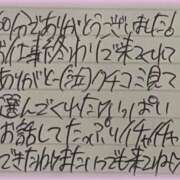 分でありがとうございました!
お仕事終わりで来てくれて
ありがと〜(泣)クチコミ見て
選んでくれたけいっぱい
お話してたっぷりイチャイチャ
できたねまたいつでも来てねっ